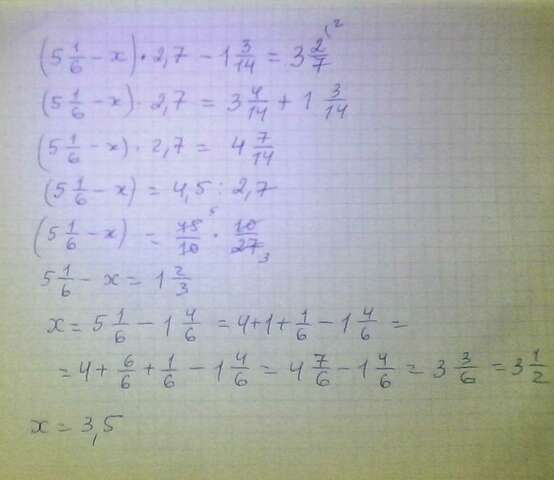 (5 1/6 - x) · 2,7 - 1 3/14 = 3 2/7 (2
(5 1/6 - x) · 2,7 = 3 4/14 + 1 3/14
(5 1/6 - x) · 2,7 = 4 7/14
(5 1/6 - x) = 4,5 : 2,7
(5 1/6 - x) = 45/10 5 · 10/27 3
5 1/6 - x = 1 2/3
x = 5 1/6 - 1 4/6 = 4+1+ 1/6 - 1 4/6 =
= 4 + 6/6 + 1/6 - 1 4/6 = 4 7/6 - 1 4/6 = 3 3/6 = 3 1/2
x = 3,5